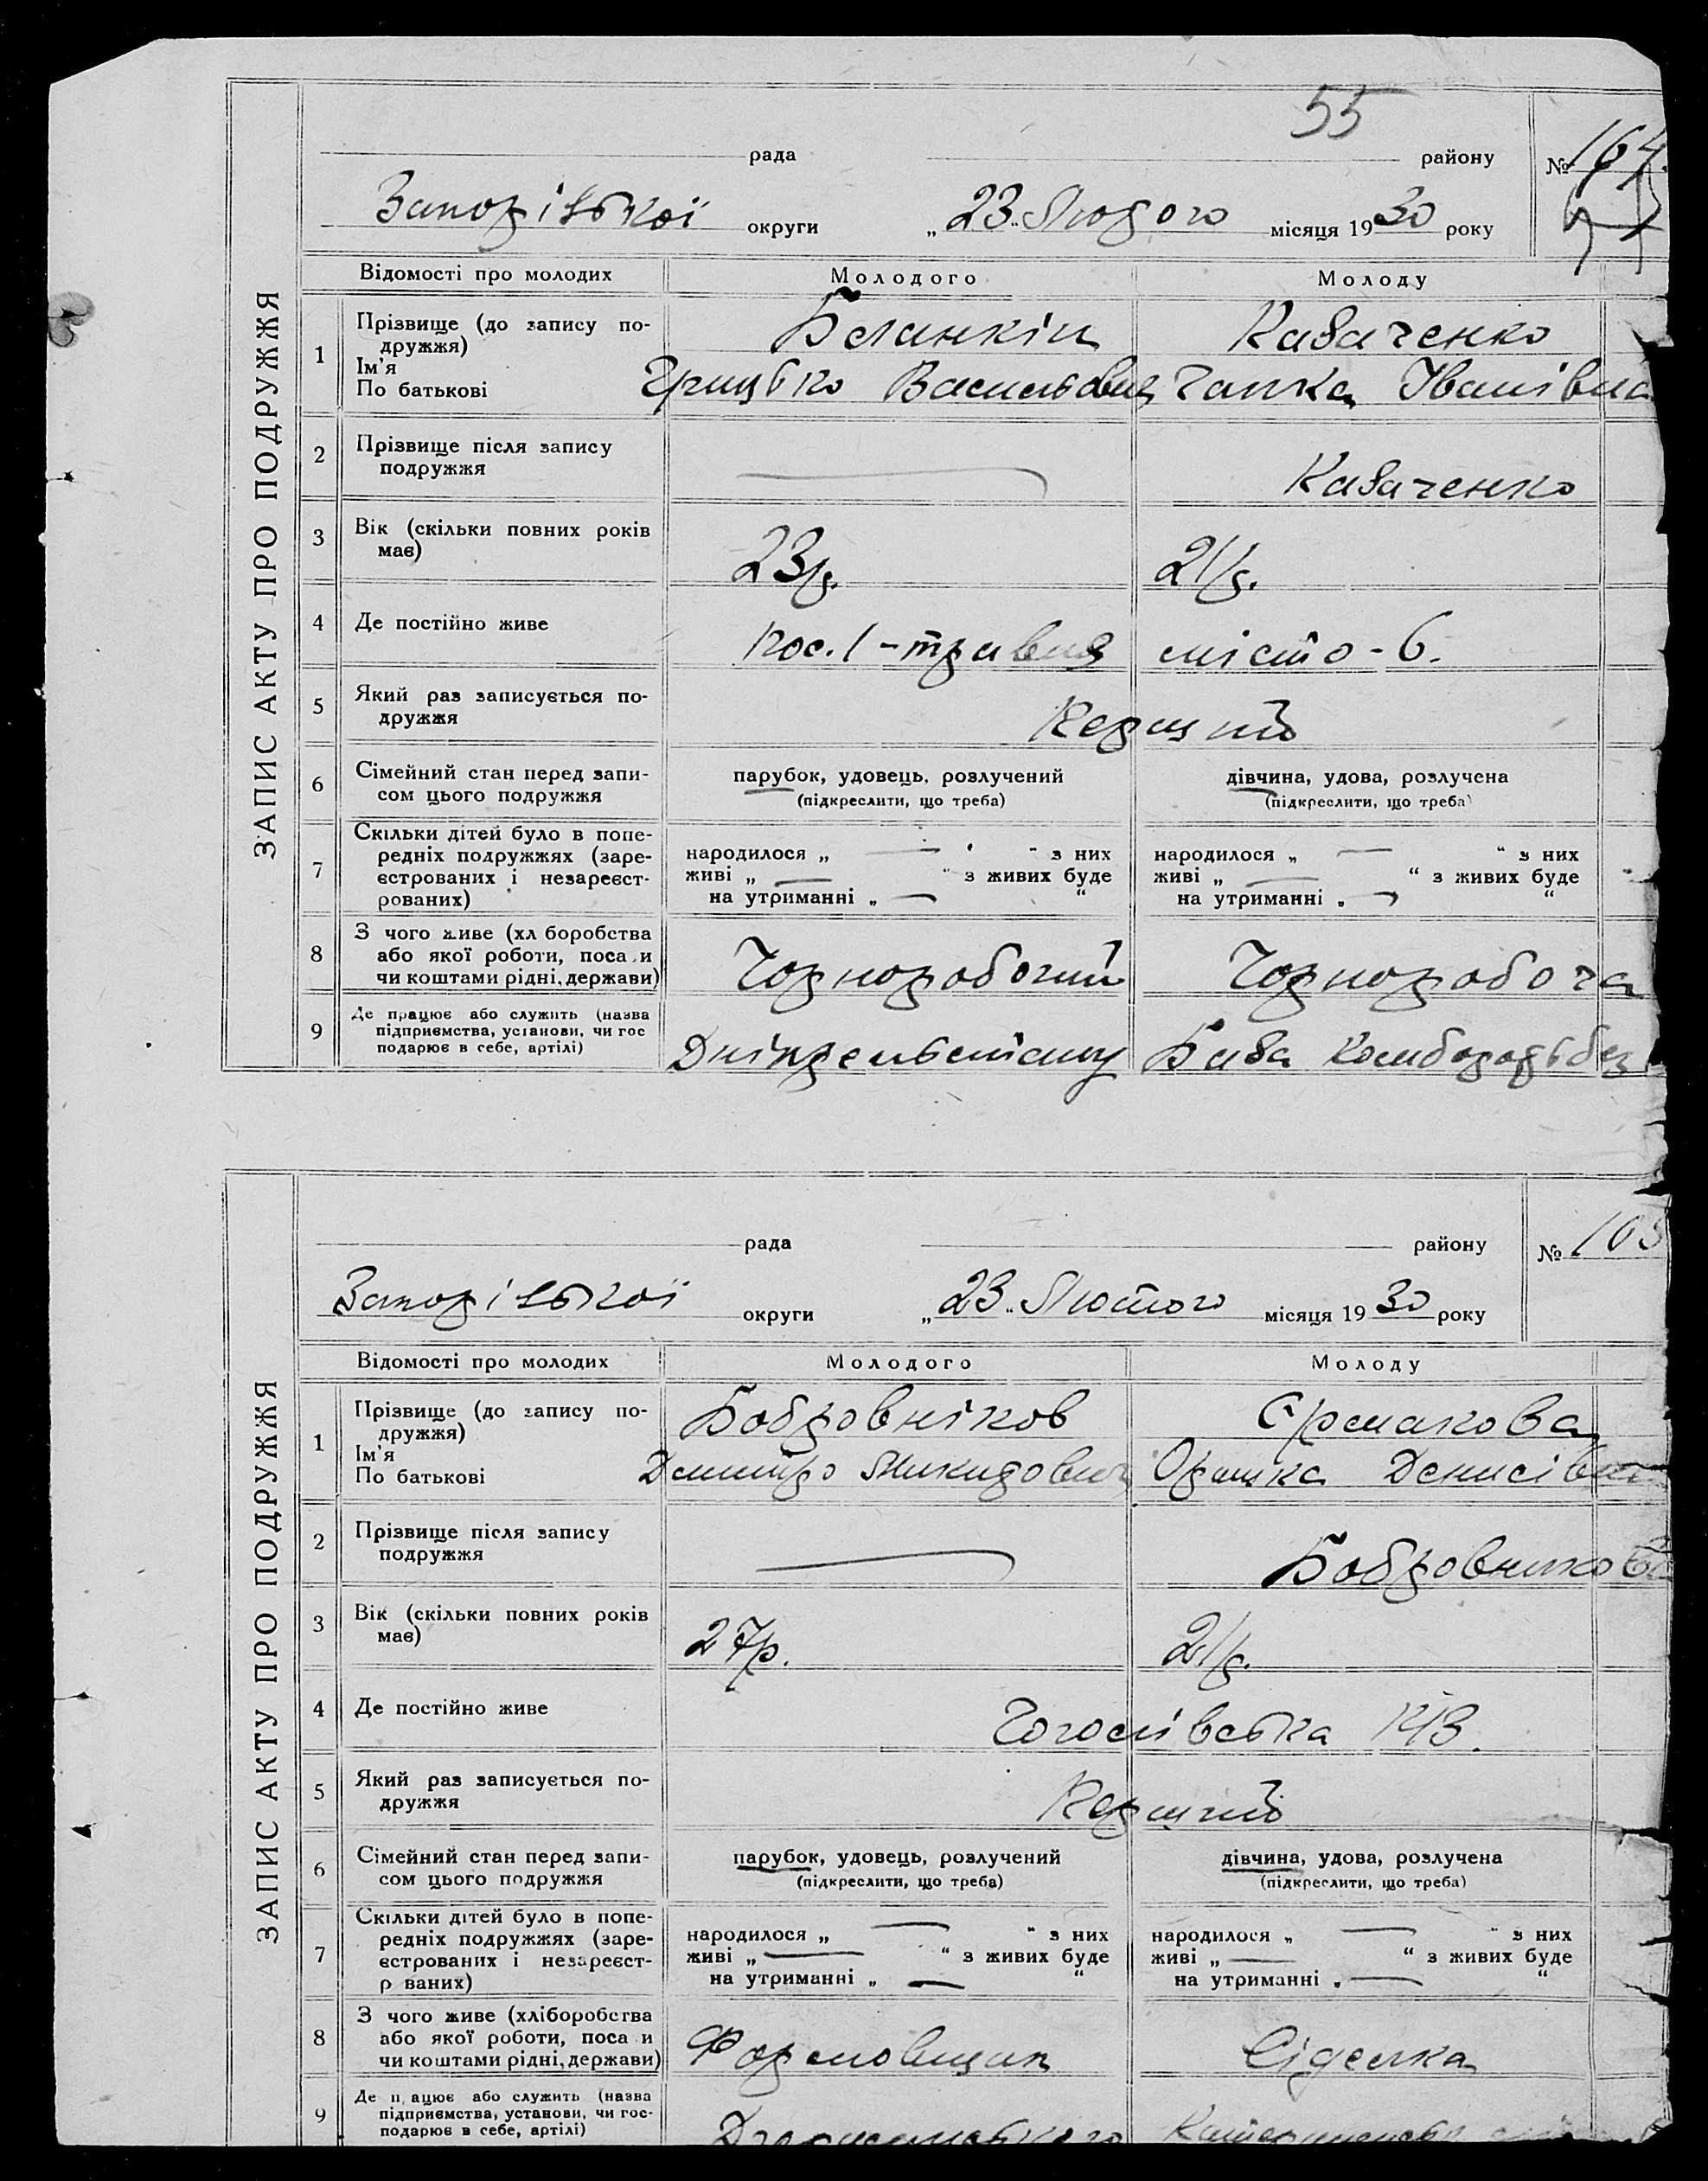 ЗАПИС АКТУ ПРО ПОДРУЖЖЯ
55
рада району № 164
Запорізької округи „23" Лютого місяця 1930 року
Відомості про молодих Молодого Молоду
1 Прізвище (до запису по-
дружжя)
Ім'я
По батькові
Козаченко
Грицько Васильович Ганка Іванівна
2 Прізвище після запису
подружжя
Козаченко
3 Вік (скільки повних років
має)
23р. 21р.
4 Де постійно живе
пос. 1-травня місто-6.
5 Який раз записується по-
дружжя
Перший
6 Сімейний стан перед запи-
сом цього подружжя
парубок, удовець, розлучений дівчина, удова, розлучена
(підкреслити, що треба) (підкреслити, що треба)
7 Скільки дітей було в попе-
редніх подружжях (заре-
єстрованих і незареєст-
рованих)
народилося „ — " з них народилося „ — " з них
живі „ — " з живих буде живі „ — " з живих буде
на утриманні „ — " на утриманні „ — "
8 З чого живе (хл боробства
або якої роботи, поса и
чи коштами рідні, держави)
Чорноробочий Чорноробоча
9 Де працює або служить (назва
підприємства, установи, чи гос
подарює в себе, артілі)
Дніпрельстану База
ЗАПИС АКТУ ПРО ПОДРУЖЖЯ
рада району № 163
Запорізької округи „23" Лютого місяця 1930 року
Відомості про молодих Молодого Молоду
1 Прізвище (до запису по-
дружжя)
Ім'я
По батькові
Бобровніков Єрмакова
Дмитро Микитович Оришка Денисівна
2 Прізвище після запису
подружжя
Бобровникова
3 Вік (скільки повних років
має)
27р. 21р.
4 Де постійно живе
Гоголівська
5 Який раз записується по-
дружжя
Перший
6 Сімейний стан перед запи-
сом цього подружжя
парубок, удовець, розлучений дівчина, удова, розлучена
(підкреслити, що треба) (підкреслити, що треба)
7 Скільки дітей було в попе-
редніх подружжях (заре-
єстрованих і незареєст-
р ваних)
народилося „ — " з них народилося „ — " з них
живі „ — " з живих буде живі „ — " з живих буде
на утриманні „ — " на утриманні „ — "
8 З чого живе (хліборобства
або якої роботи, поса и
чи коштами рідні, держави)
Формовщик Сіделка
9 Де п ацює або служить (назва
підприємства, установи, чи гос-
подарює в себе, артілі)